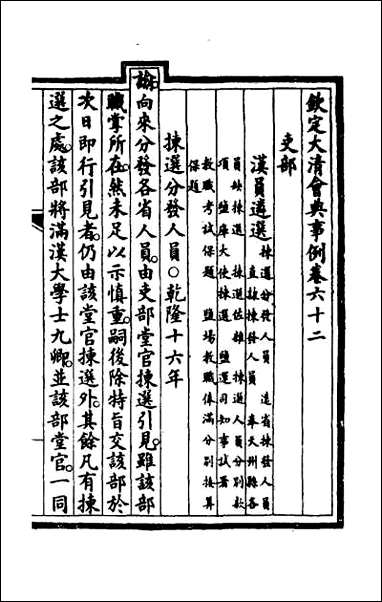 欽定大清會典事例卷六十二
吏部
漢員遴選
揀選分發人員 遠省揀發人員
直隸揀發人員 奉天州縣各
員缺揀選 揀選佐雜 揀選人員分別款
項 鹽庫大使揀選 鹽運司知事試署
教職考試保題 鹽場教職俸滿分別接算
保題
揀選分發人員○乾隆十六年
諭。向來分發各省人員。由吏部堂官揀選引見。雖該部
職掌所在。然未足以示慎重。嗣後除特旨交該部於
次日即行引見者。仍由該堂官揀選外。其餘凡有揀
選之處。該部將滿漢大學士九卿。並該部堂官。一同